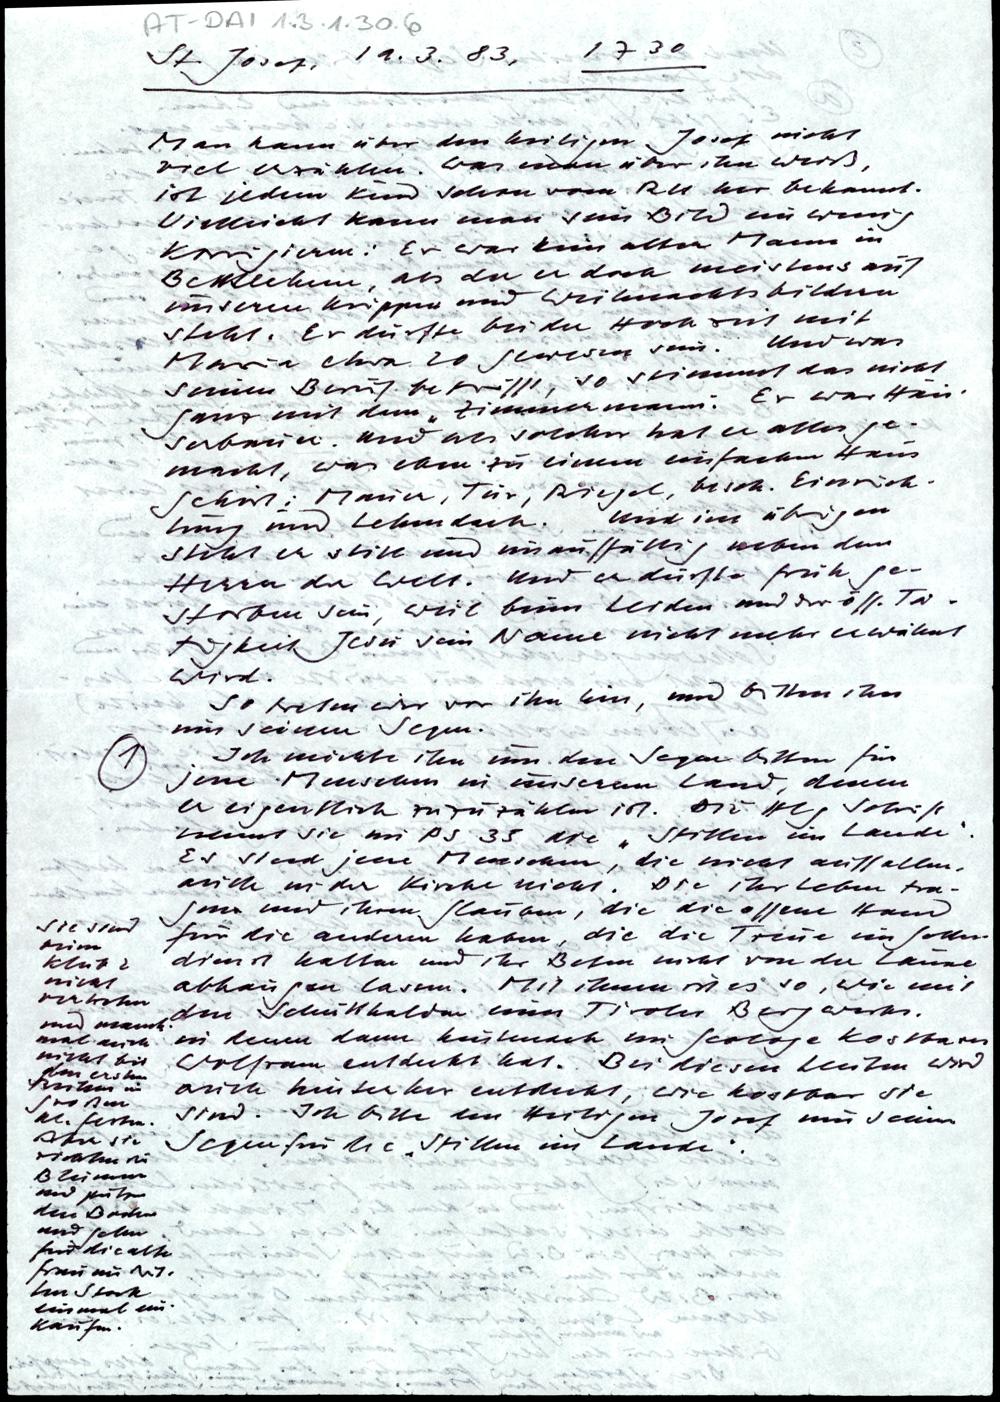 AT-DAI 1.3.1.30.6
St. Josef, 19.3.83, 1730
Man kann über den heiligen Josef nicht
viel erzählen. Was man über ihn weiß,
ist jedem Kind schon vom RU her bekannt.
Vielleicht kann man sein Bild ein wenig
korrigieren: Er war kein alter Mann in
Bethlehem, als der er doch meistens auf
unseren Krippen und Weihnachtsbildern
steht. Er dürfte bei der Hochzeit mit
Maria etwa 20 gewesen sein. Und was
seinen Beruf betrifft, so stimmt das nicht
ganz mit dem "Zimmermann". Er war Häu-
serbauer. Und als solcher hat er alles ge-
macht, was eben zu einem einfachen Haus
gehört: Mauer, Tür, Riegel, besch. Einrich-
tung und Lehmdach. Und im übrigen
steht er still und unauffällig neben dem
Herrn der Welt. Und er dürfte früh ge-
storben sein, weil beim Leiden und der öff. Tä-
tigkeit Jesu sein Name nicht mehr erwähnt
wird.
So treten wir vor ihn hin, und bitten ihn
um seinen Segen.
1 Ich möchte ihn um den Segen bitten für
jene Menschen in unserem Land, denen
er eigentlich zuzuzählen ist. Die Hlg Schrift
nennt sie im PS 35 die "Stillen im Lande".
Es sind jene Menschen, die nicht auffallen,
auch in der Kirche nicht. Die ihr Leben tra-
gen und ihren Glauben, die die offene Hand
für die anderen haben, die die Treue im
dienst halten und ihr Beten nicht von der Laune
abhängen lassen. Mit ihnen ist es so, wie mit
den Schutthalden eines Tiroler Bergwerks.
in denen dann heutenach ein Geologe kostbares
Wolfram entdeckt hat. Bei diesen Leuten wird
auch hinterher entdeckt, wie kostbar sie
sind. Ich bitte den Heiligen Josef um seinen
Segen für die "Stillen im Lande".
Sie sind
beim
Klub 2
nicht
vertreten
und manch
mal auch
nicht bei
den ersten
Reihen in
großen
Aber sie
richten die
Blumen
und putzen
den Boden
und gehen
für die alte
Frau im drit-
ten Stock
einmal ein-
kaufen.